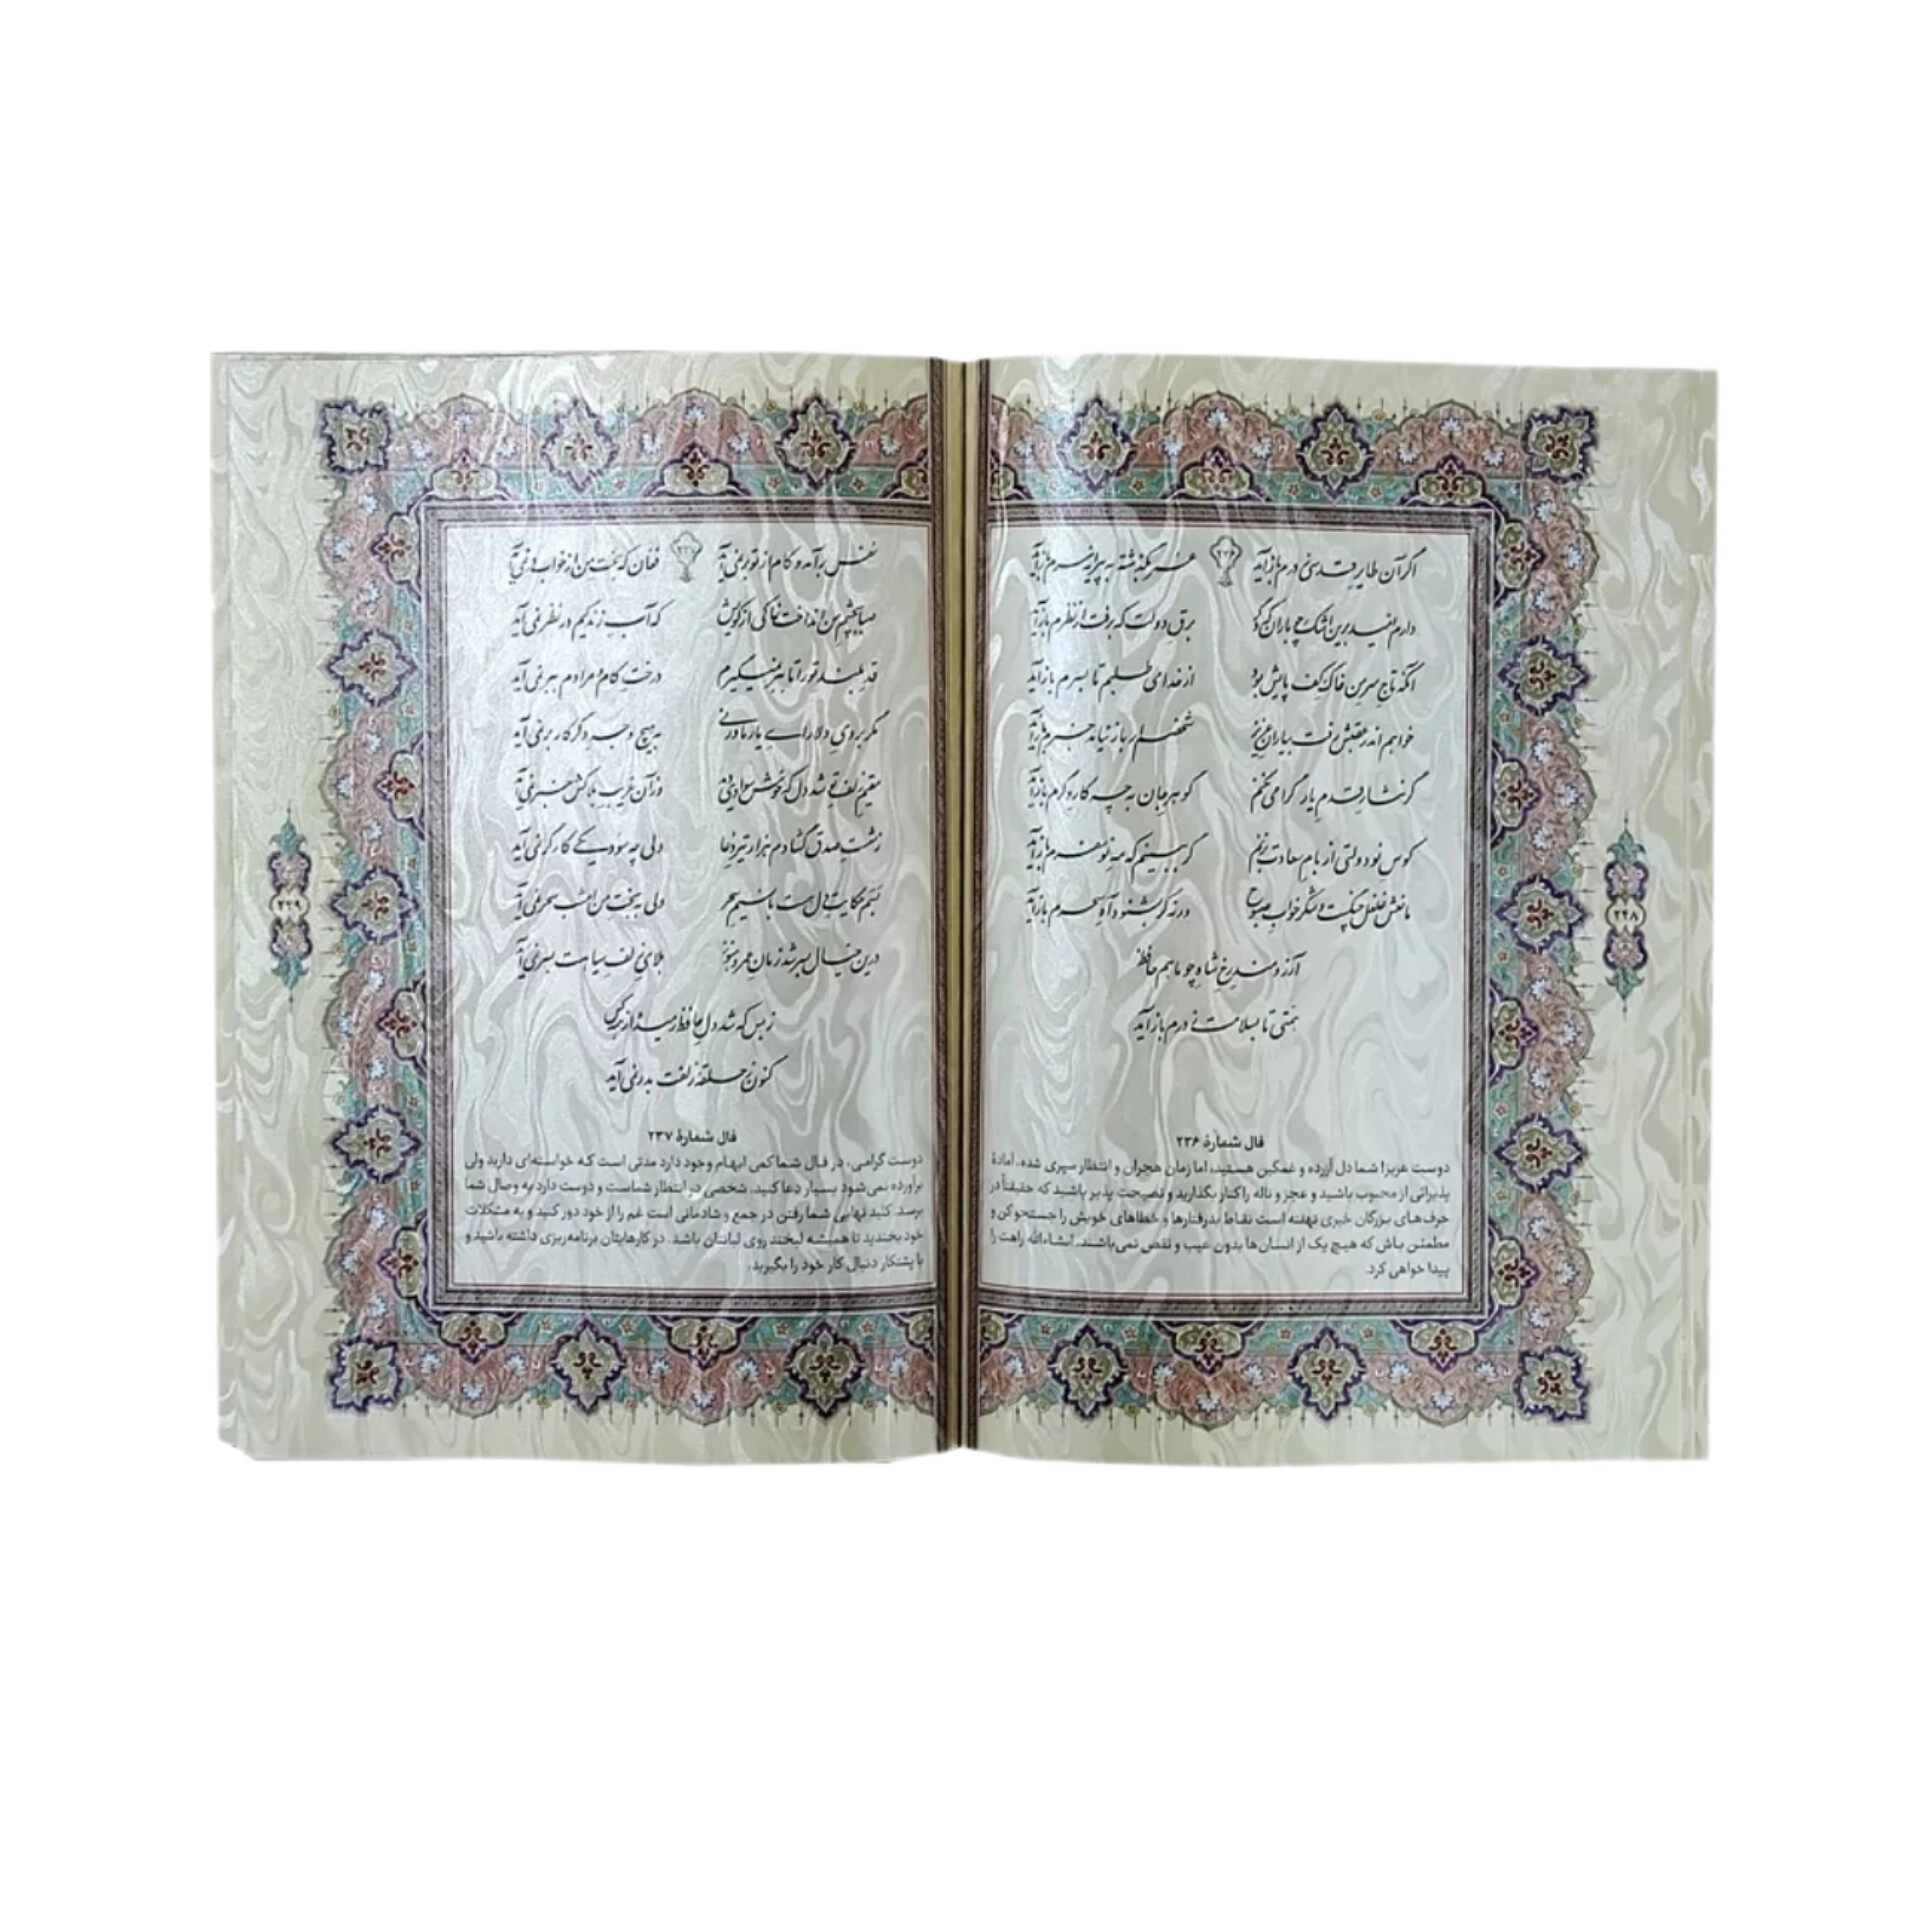 ۲۳۶
اگر آن طایر قدسی ز درم بازآید عمر بگذشته به پیرانه سرم بازآید
دارم امید برین اشک چو باران که دگر برق دولت که برفت از نظرم بازآید
آنکه تاج سر من خاک کف پایش بود از خدا می طلبم تا بسرم بازآید
خواهم اندر عقبش رفت بیاران عزیز شخصم ار باز نیاید خبرم بازآید
گر نثار قدم یار گرامی نکنم گوهر جان به چه کار دگرم بازآید
کوس نو دولتی از بام سعادت بزنم گر ببینم که مه نو سفرم بازآید
مانعش غلغل چنگست و شکر خواب صبوح ورنه گر بشنود آه سحرم بازآید
آرزومند رخ شاه چو ماهم حافظ
همتی تا بسلامت ز درم بازآید
فال شمارهٔ ۲۳۶
دوست عزیز! شما دل آزرده و غمگین هستید، اما زمان هجران و انتظار سپری شده. آمادهٔ
پذیرائی از محبوب باشید و عجز و ناله را کنار بگذارید و نصیحت پذیر باشید که حقیقتاً در
حرف‌های بزرگان خیری نهفته است نقاط بدرفتارها و خطاهای خویش را جستجو کن و
مطمئن باش که هیچ یک از انسان‌ها بدون عیب و نقص نمی‌باشند. انشاءالله راهت را
پیدا خواهی کرد.
۲۲۸
۲۳۷
نفس برآمد و کام از تو بر نمی آید فغان که بخت من از خواب در نمی آید
صبا بچشم من انداخت خاکی از کویش که آب زندگیم در نظر نمی آید
قد بلند تو را تا ببر نمیگیرم درخت کام و مرادم ببر نمی آید
مگر بروی دلارای یار ما ورنی به هیچ وجه دگر کار بر نمی آید
مقیم زلف تو شد دل که خوش سوادی دید وز آن غریب بلاکش خبر نمی آید
ز شست صدق گشادم هزار تیر دعا ولی چه سود یکی کارگر نمی آید
بسم حکایت دل هست با نسیم سحر ولی به بخت من امشب سحر نمی آید
درین خیال بسر شد زمان عمر و هنوز بلای زلف سیاهت بسر نمی آید
ز بس که شد دل حافظ رمیده از همه کس
کنون ز حلقه زلفت بدر نمی آید
فال شمارهٔ ۲۳۷
دوست گرامی، در فال شما کمی ابهام وجود دارد مدتی است که خواسته‌ای دارید ولی
برآورده نمی‌شود بسیار دعا کنید. شخصی در انتظار شماست و دوست دارد به وصال شما
برسد. کلید نهایی شما رفتن در جمع و شادمانی است غم را از خود دور کنید و به مشکلات
خود بخندید تا همیشه لبخند روی لبانتان باشد. در کارهایتان برنامه‌ریزی داشته باشید و
با پشتکار دنبال کار خود را بگیرید.
۲۲۹